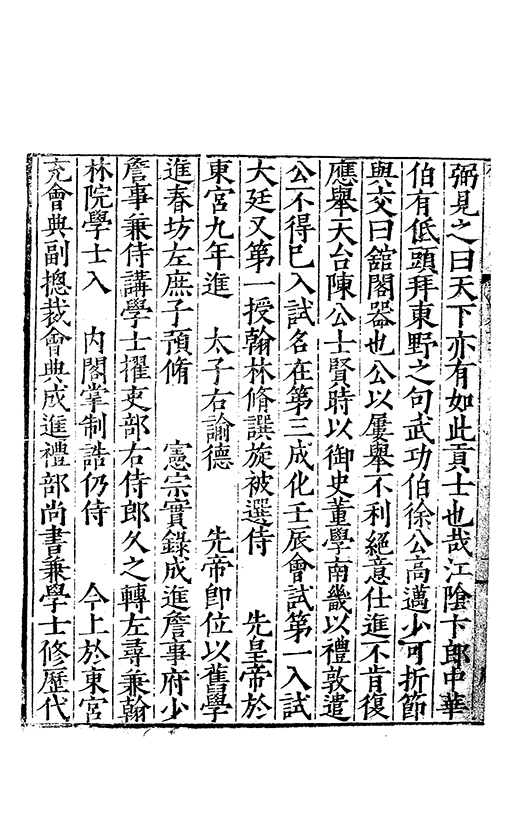 弼見之曰天下亦有如此貢士也哉江陰卞郎中華
伯有低頭拜東野之句武功伯徐公高邁少可折節
與交曰舘閣器也公以屢舉不利絕意仕進不肯復
應舉天台陳公士賢時以御史董學南畿以禮敦遣
公不得已入試名在第三成化壬辰會試第一入試
大廷又第一授翰林脩譔旋被選侍　先皇帝於
東宮九年進　太子右諭德　先帝即位以舊學
進春坊左庶子預脩　憲宗實錄成進詹事府少
詹事兼侍講學士擢吏部右侍郎久之轉左尋兼翰
林院學士入　內閣掌制誥仍侍　今上於東宮
充會典副揔裁會典成進禮部尚書兼學士修歷代